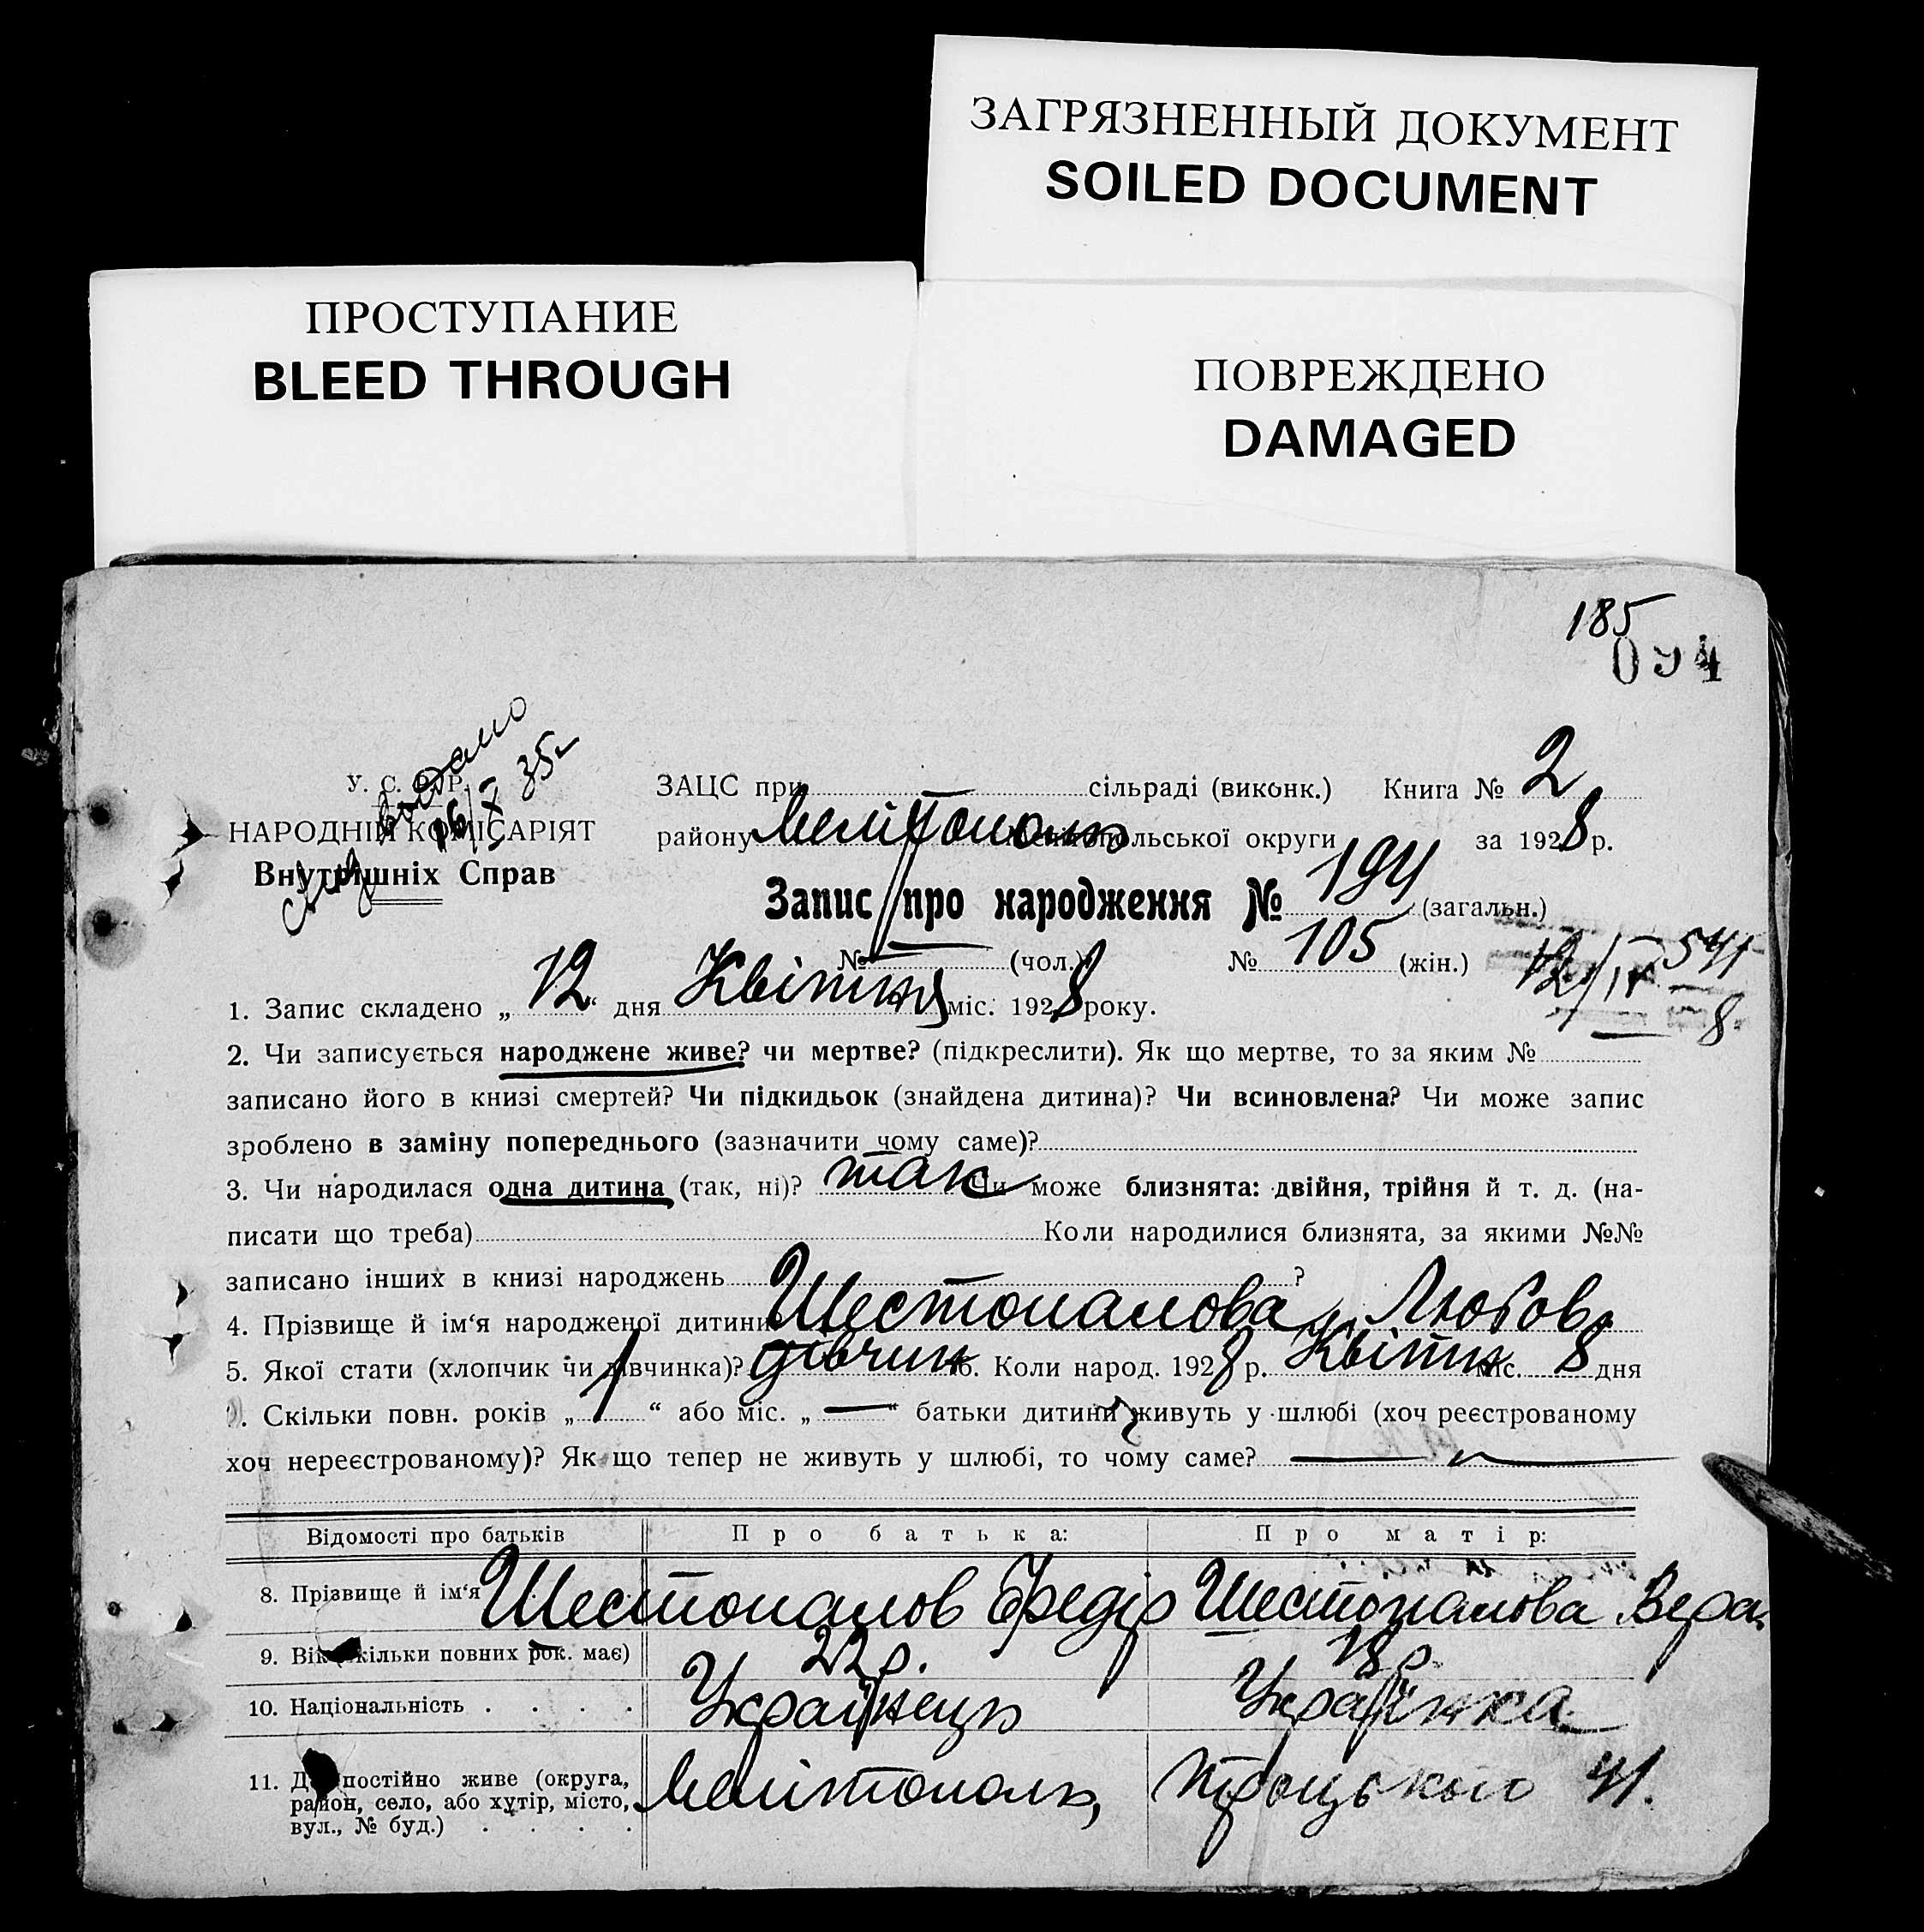 ЗАГРЯЗНЕННЫЙ ДОКУМЕНТ
SOILED DOCUMENT
ПРОСТУПАНИЕ
BLEED THROUGH
ПОВРЕЖДЕНО
DAMAGED
185
094
видано
16/X 35
У. С. Р. Р.
НАРОДНІЙ КОМІСАРІЯТ
Внутрішніх Справ
ЗАЦС при сільраді (виконк.) Книга № 2
району Мелітополь Мелітопольської округи за 1928 р.
Запис про народження № 194 (загальн.)
№ — (чол.) № 105 (жін.)
12/IV 541
8
1. Запис складено „12“ дня Квітня міс. 1928 року.
2. Чи записується народжене живе? чи мертве? (підкреслити). Як що мертве, то за яким №
записано його в книзі смертей? Чи підкидьок (знайдена дитина)? Чи всиновлена? Чи може запис
зроблено в заміну попереднього (зазначити чому саме)?
3. Чи народилася одна дитина (так, ні)? так Чи може близнята: двійня, трійня й т. д. (на-
писати що треба) Коли народилися близнята, за якими №№
записано інших в книзі народжень ?
4. Прізвище й ім‘я народженої дитини Шестопалова Любов
5. Якої стати (хлопчик чи дівчинка)? дівчин 6. Коли народ. 1928 р. Квітн міс. 8 дня
7. Скільки повн. років „1“ або міс. „—“ батьки дитини живуть у шлюбі (хоч реєстрованому
хоч нереєстрованому)? Як що тепер не живуть у шлюбі, то чому саме? —
Відомості про батьків Про батька: Про матір:
8. Прізвище й ім‘я Шестопалов Федір Шестопалова Вера
9. Вік (скільки повних рок. має) 22 р. 18 р.
10. Національність . . . . Українець Українка
11. Де постійно живе (округа,
район, село, або хутір, місто,
вул., № буд.) . . . . Мелітополь, Троцького 41.